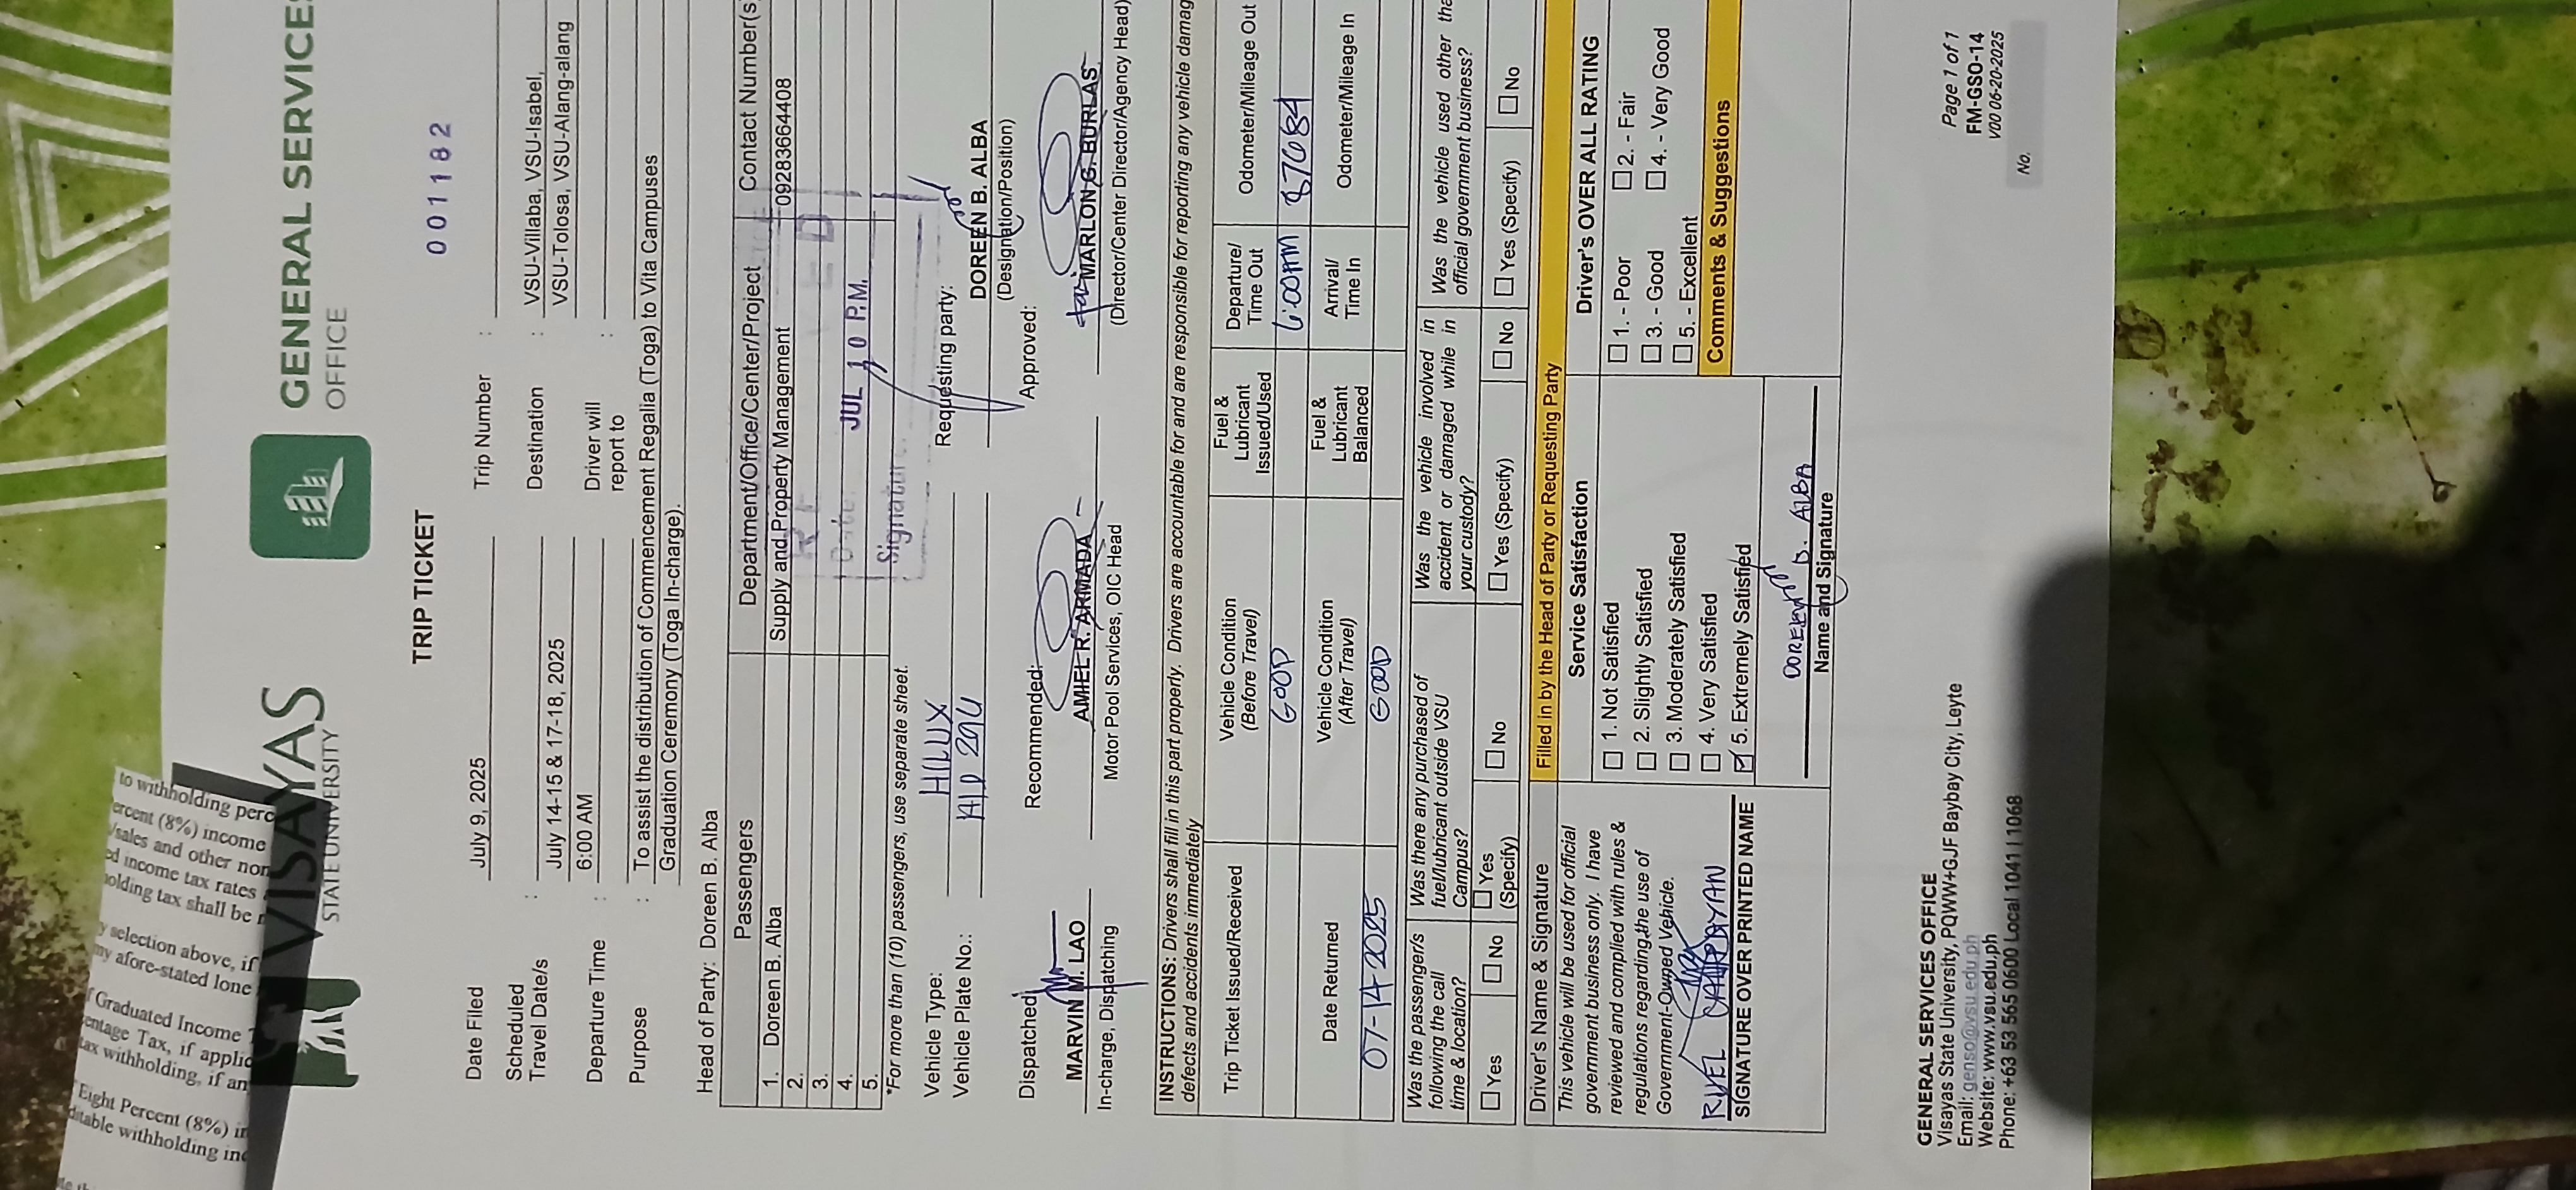 to withholding perc
ercent (8%) income
/sales and other non
ed income tax rates
olding tax shall be r
y selection above, if
my afore-stated lone
f Graduated Income T
entage Tax, if applic
tax withholding, if an
Eight Percent (8%) in
ditable withholding inc
VISAYAS
STATE UNIVERSITY
GENERAL SERVICES
OFFICE
TRIP TICKET
001182
Date Filed
July 9, 2025
Trip Number :
Scheduled Travel Date/s :
July 14-15 & 17-18, 2025
Destination :
VSU-Villaba, VSU-Isabel,
VSU-Tolosa, VSU-Alang-alang
Departure Time :
6:00 AM
Driver will report to :
Purpose :
To assist the distribution of Commencement Regalia (Toga) to Vita Campuses
Graduation Ceremony (Toga In-charge).
Head of Party: Doreen B. Alba
Passengers
Department/Office/Center/Project
Contact Number(s
1. Doreen B. Alba
Supply and Property Management
09283664408
2.
3.
4.
5.
JUL 10 P.M.
Signature
*For more than (10) passengers, use separate sheet.
Vehicle Type: HILUX
Vehicle Plate No.:
Requesting party:
DOREEN B. ALBA
(Designation/Position)
Dispatched:
MARVIN M. LAO
In-charge, Dispatching
Recommended:
AMIEL R. ARMADA
Motor Pool Services, OIC Head
Approved:
MARLON G. BURLAS
(Director/Center Director/Agency Head)
INSTRUCTIONS: Drivers shall fill in this part properly. Drivers are accountable for and are responsible for reporting any vehicle damag
defects and accidents immediately
Trip Ticket Issued/Received
Vehicle Condition (Before Travel)
Fuel & Lubricant Issued/Used
Departure/ Time Out
Odometer/Mileage Out
GOOD
6:00AM
87684
Date Returned
Vehicle Condition (After Travel)
Fuel & Lubricant Balanced
Arrival/ Time In
Odometer/Mileage In
07-14-2025
GOOD
Was the passenger/s following the call time & location?
Was there any purchased of fuel/lubricant outside VSU Campus?
Was the vehicle involved in accident or damaged while in your custody?
Was the vehicle used other tha official government business?
☐ Yes ☐ No
☐ Yes (Specify) ☐ No
☐ Yes (Specify) ☐ No
☐ Yes (Specify) ☐ No
Driver's Name & Signature
This vehicle will be used for official
government business only. I have
reviewed and complied with rules &
regulations regarding the use of
Government-Owned Vehicle.
SIGNATURE OVER PRINTED NAME
Filled in by the Head of Party or Requesting Party
Service Satisfaction
☐ 1. Not Satisfied
☐ 2. Slightly Satisfied
☐ 3. Moderately Satisfied
☐ 4. Very Satisfied
☑ 5. Extremely Satisfied
DOREEN B. ALBA
Name and Signature
Driver's OVER ALL RATING
☐ 1. - Poor ☐ 2. - Fair
☐ 3. - Good ☐ 4. - Very Good
☐ 5. - Excellent
Comments & Suggestions
GENERAL SERVICES OFFICE
Visayas State University, PQWW+GJF Baybay City, Leyte
Email: genso@vsu.edu.ph
Website: www.vsu.edu.ph
Phone: +63 53 565 0600 Local 1041 | 1068
Page 1 of 1
FM-GSO-14
V00 06-20-2025
No.